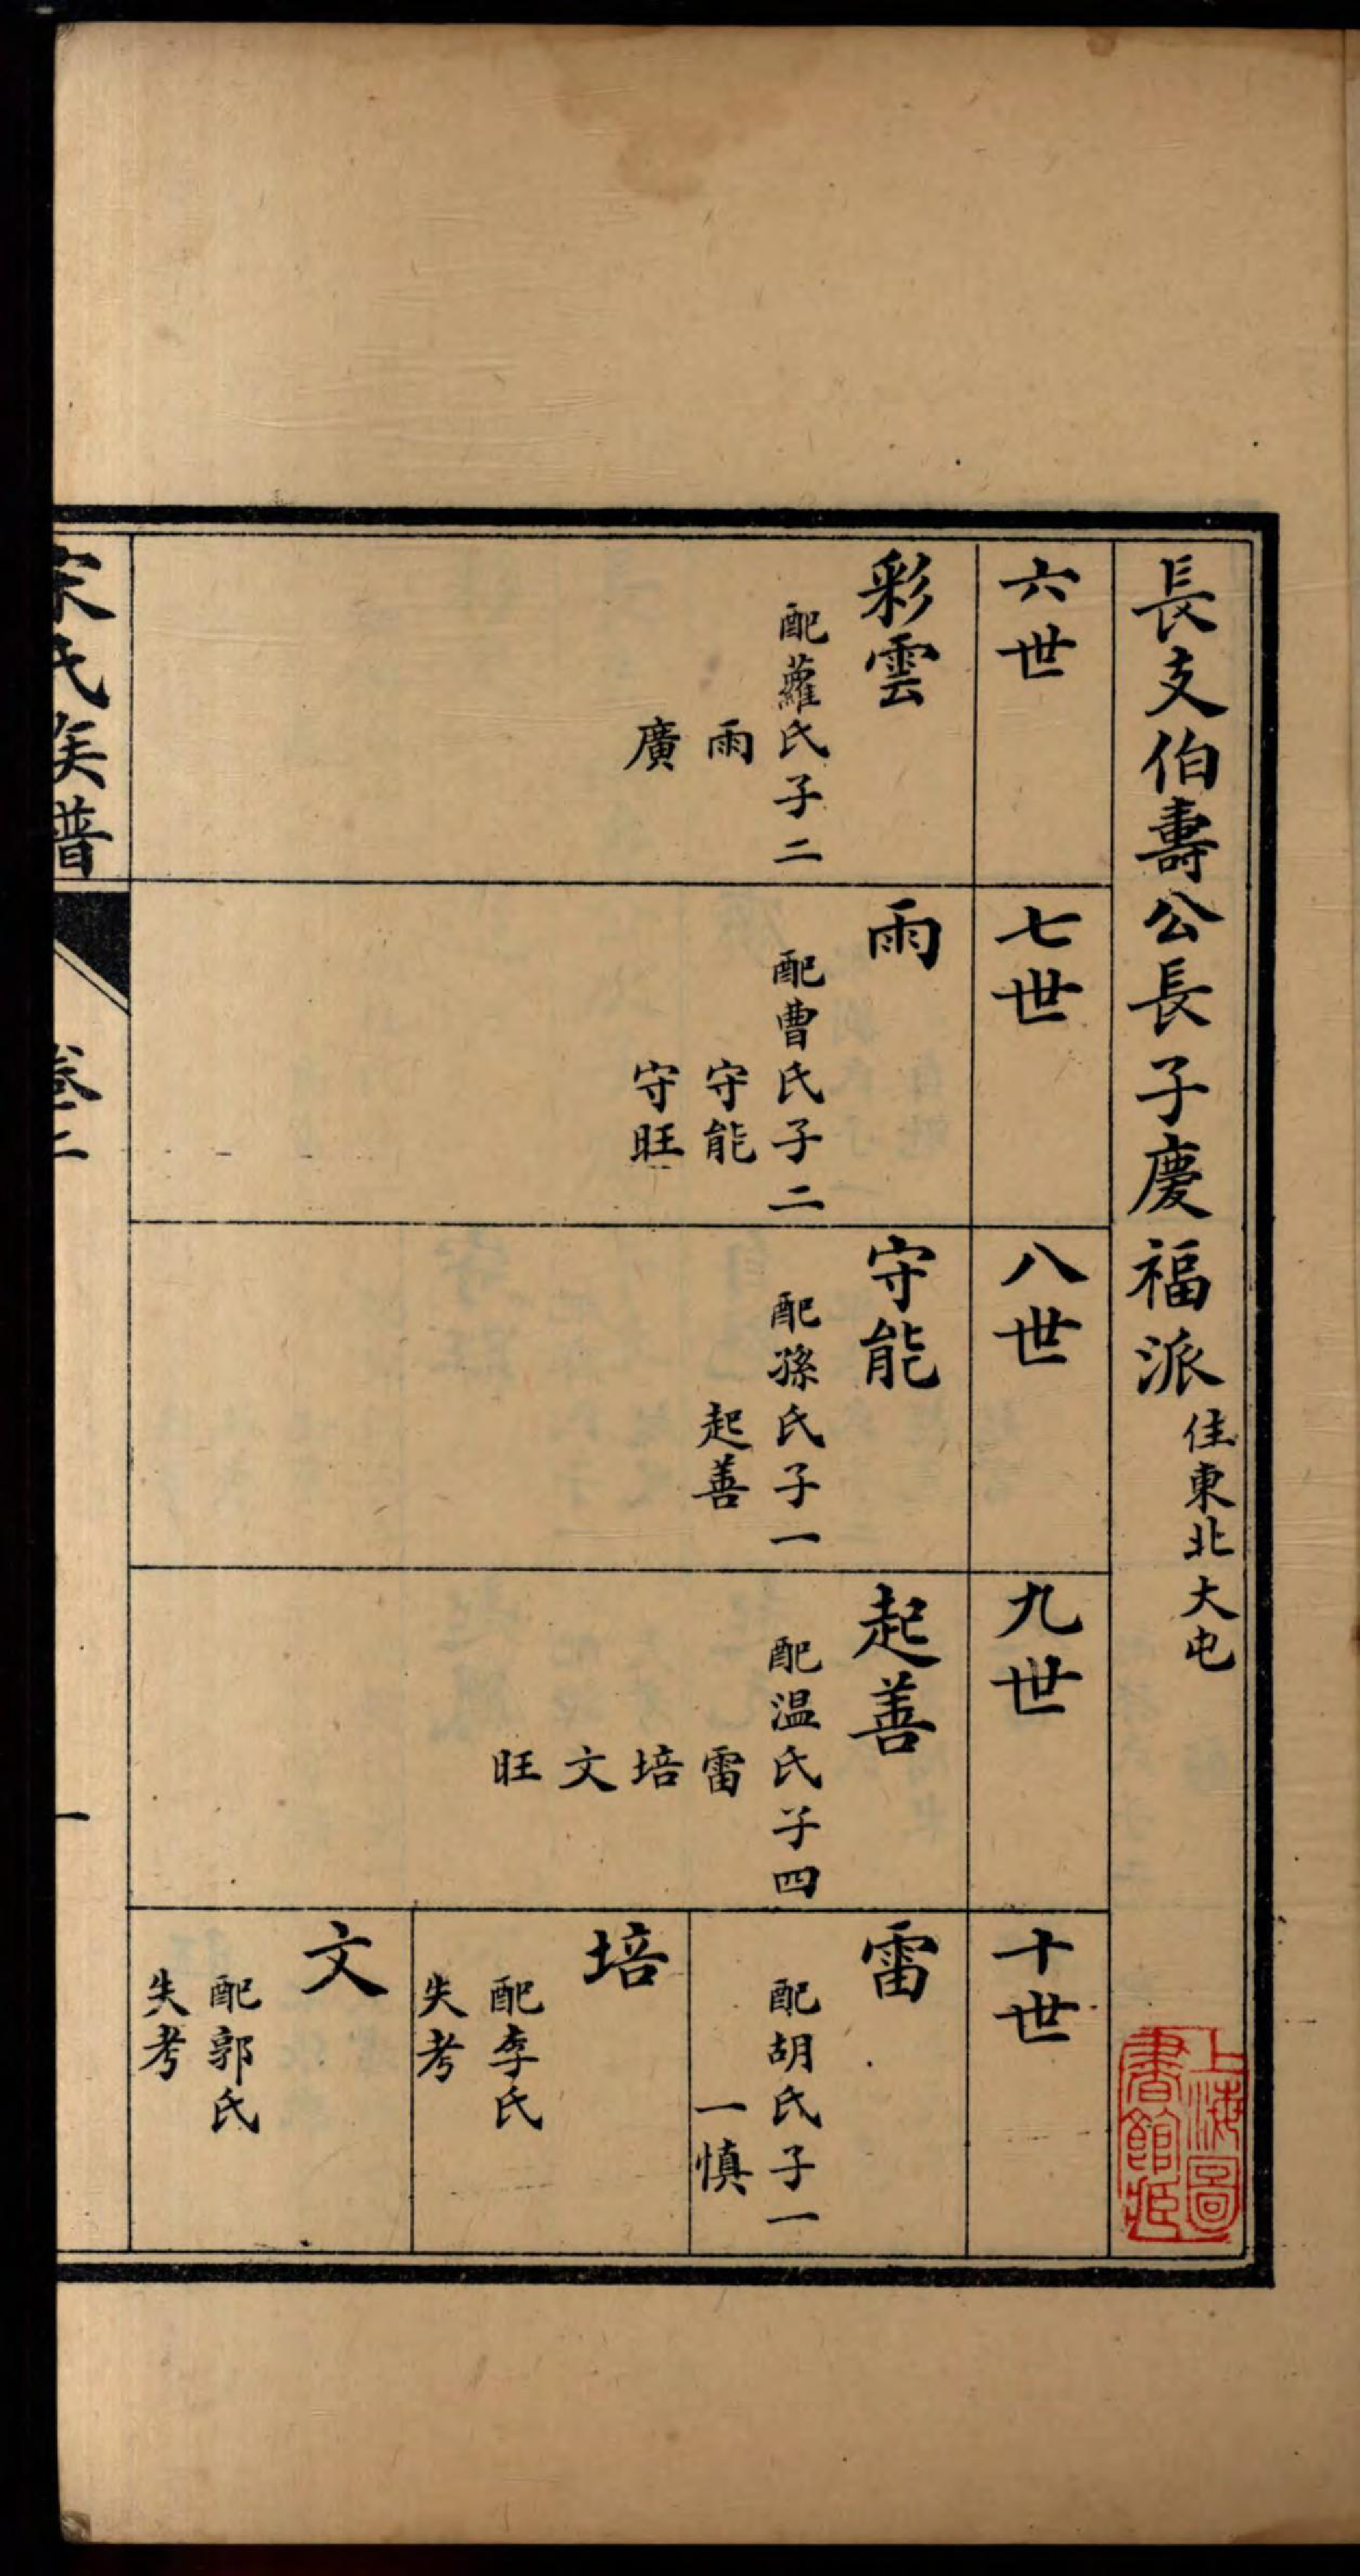 長支伯壽公長子慶福派 住東北大屯
六世
彩雲
配蘿氏子二
雨
廣
七世
雨
配曹氏子二
守能
守旺
八世
守能
配孫氏子一
起善
九世
起善
配温氏子四
雷
培
文
旺
十世
雷
配胡氏子一
一慎
培
配李氏
失考
文
配郭氏
失考
氏族譜
卷二
一
上海圖
書館藏